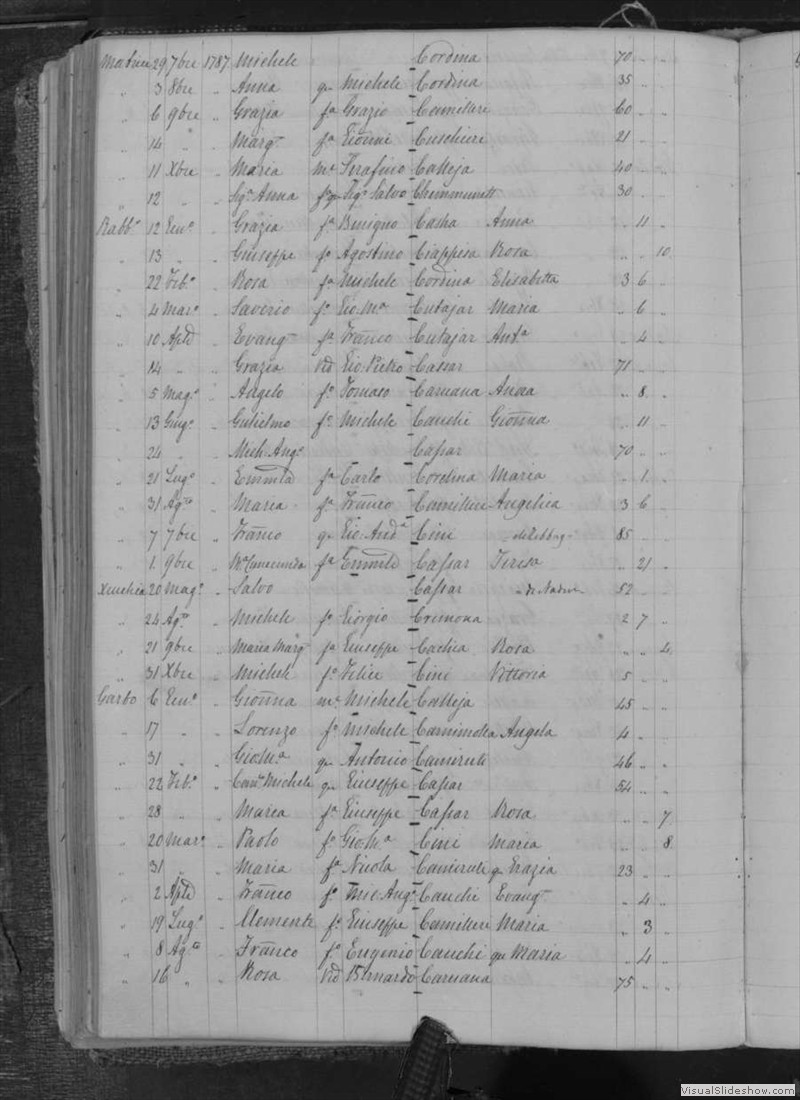 Matrice 29 7bre 1787 Michele Cordina 70 " "
" 3 8bre " Anna qm Michele Cordina 35 " "
" 6 9bre " Grazia fa Grazio Camilleri 60 " "
" 14 " " Marga fa Gionni Cuschieri 21 " "
" 11 Xbre " Maria me Serafino Calleja 40 " "
" 12 " " Siga Anna Sigr Salvo 30 " "
Rabbo 12 Eno " Grazia fa Benigno Cacha Anna " 11 "
" 13 " " Giuseppe fo Agostino Ciappisa Rosa " " 10
" 22 Febo " Rosa fa Michele Cordina Elisabetta 3 6 "
" 4 Maro " Saverio fo Gio Ma Cutajar Maria " 6 "
" 10 Aple " Evanga fa Franco Cutajar Anta " 4 "
" 14 " " Grazia vid Gio Pietro Cassar 71 " "
" 5 Mago " Angelo fo Tomaso Caruana Anna " 8 "
" 13 Giugo " Gulielmo fo Michele Cauchi Gionna " 11 "
" 24 " " Mich. Ango Cassar 70 " "
" 21 Lugo " Emmla fa Carlo Cordina Maria " 1 "
" 31 Agto " Maria fa Franco Camilleri Angelica 3 6 "
" 7 7bre " Franco qm Gio. Anda Cini 85 " "
" 1 9bre " Ma Cunecunda fa Emmle Cassar Teresa " 21 "
Xeuchia 20 Mago " Salvo Cassar di Nadur 52 " "
" 24 Agto " Michele fo Giorgio Cremona 2 7 "
" 21 9bre " Maria Marga fa Giuseppe Cachia Rosa " " 4
" 31 Xbre " Michele fo Felice Cini Vittoria 5 " "
Garbo 6 Eno " Gionna me Michele Calleja 45 " "
" 17 " " Lorenzo fo Michele Angela 4 " "
" 31 " " Gio Ma qm Antonio 46 " "
" 22 Febo " Cano Michele qm Giuseppe Cassar 54 " "
" 28 " " Maria fa Giuseppe Cassar Rosa " " 7
" 20 Maro " Paolo fo Gio Ma Cini Maria " " 8
" 31 " Maria fa Nicola qm Grazia 23 " "
" 2 Aple " Franco fo Mic. Ango Cauchi Evanga " 4 "
" 19 Lugo " Clemente fo Giuseppe Camilleri Maria " 3 "
" 8 Agto " Franco fo Eugenio Cauchi qm Maria " 4 "
" 16 " " Rosa vid Bernardo Caruana 75 " "
VisualSlideshow.com